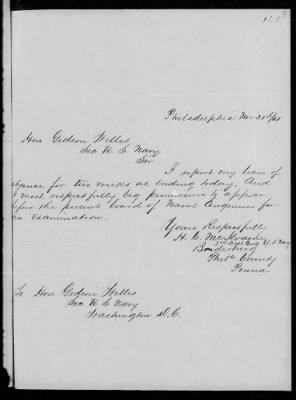 Philadelphia Nov 23d/61
Hon Gideon Welles
Sec U S Navy
Sir
I report my leave of
absence for two weeks as ending today, and
I most respectfully beg permission to appear
before the present board of Naval Engineers for
an Examination.
Yours Respectfully
H. C. McIlvaine
3rd Asst Eng U. S Navy
Bridesburg
Phila County
Penna
To Hon Gideon Welles
Sec U S Navy
Washington D.C.